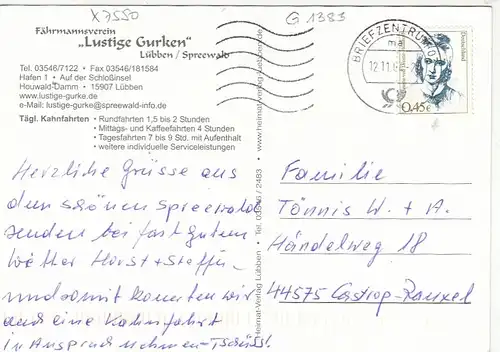 X7550
G 1383
Fährmannsverein
„Lustige Gurken"
Lübben / Spreewald
Tel. 03546/7122 • Fax 03546/181584
Hafen 1 • Auf der Schloßinsel
Houwald-Damm • 15907 Lübben
www.lustige-gurke.de
e-Mail: lustige-gurke@spreewald-info.de
Tägl. Kahnfahrten • Rundfahrten 1,5 bis 2 Stunden
• Mittags- und Kaffeefahrten 4 Stunden
• Tagesfahrten 7 bis 9 Std. mit Aufenthalt
• weitere individuelle Serviceleistungen
Herzliche Grüsse aus
dem schönen Spreewald
senden bei fast gutem
Wetter Horst + Steffi.
und somit konnten wir
auch eine Kahnfahrt
in Anspruch nehmen - Tschüss!
Heimat-Verlag Lübben • Tel. 03546 / 2483 • www.heimat-verlag-luebben.de
BRIEFZENTRUM
ma
12.11.
Deutschland
0,45€
Familie
Tönnis W. + A.
Händelweg 18
44575 Castrop-Rauxel